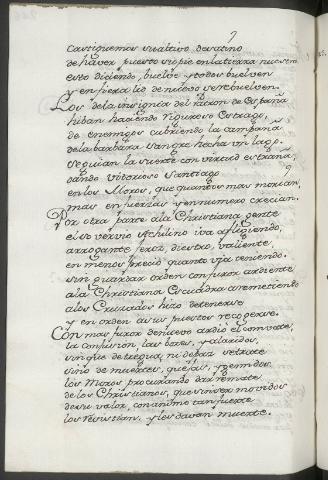 castiguemos su altivo desatino
de haver puesto su pie en la tierra nuestra
esto diciendo, buelve y todos buelven
y en fiera lid de nuevo se rebuelven.
Los de la insignia del Patron de España
hiban haciendo riguroso estrago,
de enemigos cubriendo la campaña
de la barbara sangre hecha un lago.
seguian la suerte con virtud estraña
dando victorioso Santiago
en los Moros, que quantos mas morian,
mas en fuerzas y en numero crecian.
Por otra parte a la Christiana gente
el sobervio Achilino iva afligiendo,
arrogante, feroz, diestro, valiente,
en menosprecio quanto via teniendo.
sin guardar orden con furor ardiente
a la Christiana Escuadra acometiendo
a los Cruzados hizo detenerse
y en orden a sus puestos recogerse.
Con mas furor de nuevo ardió el combate,
la confusion, las voces, y alaridos,
sin que de tregua, ni de paz se trate
sino de muertes, quejas, y gemidos.
los Moros procurando dar remate
de los Christianos, que se vieron movidos
de su valor, con animo tan fuerte
los resistian, y les davan muerte.